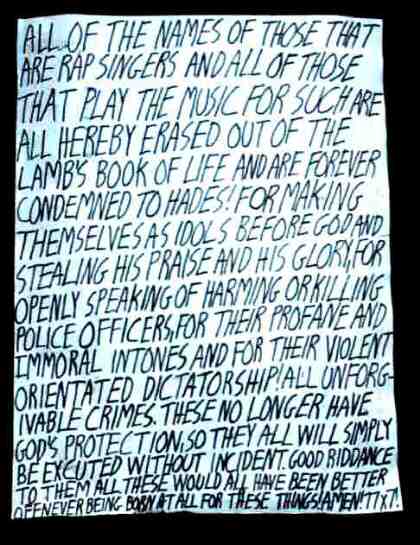 ALL OF THE NAMES OF THOSE THAT
ARE RAP SINGERS AND ALL OF THOSE
THAT PLAY THE MUSIC FOR SUCH ARE
ALL HEREBY ERASED OUT OF THE
LAMB'S BOOK OF LIFE AND ARE FOREVER
CONDEMNED TO HADES! FOR MAKING
THEMSELVES AS IDOLS BEFORE GOD AND
STEALING HIS PRAISE AND HIS GLORY, FOR
OPENLY SPEAKING OF HARMING OR KILLING
POLICE OFFICERS, FOR THEIR PROFANE AND
IMMORAL INTONES AND FOR THEIR VIOLENT
ORIENTATED DICTATORSHIP! ALL UNFORG-
IVABLE CRIMES. THESE NO LONGER HAVE
GOD'S PROTECTION, SO THEY ALL WILL SIMPLY
BE EXCUTED WITHOUT INCIDENT. GOOD RIDDANCE
TO THEM ALL THESE WOULD ALL HAVE BEEN BETTER
OFF NEVER BEING BORN AT ALL FOR THESE THINGS! AMEN!